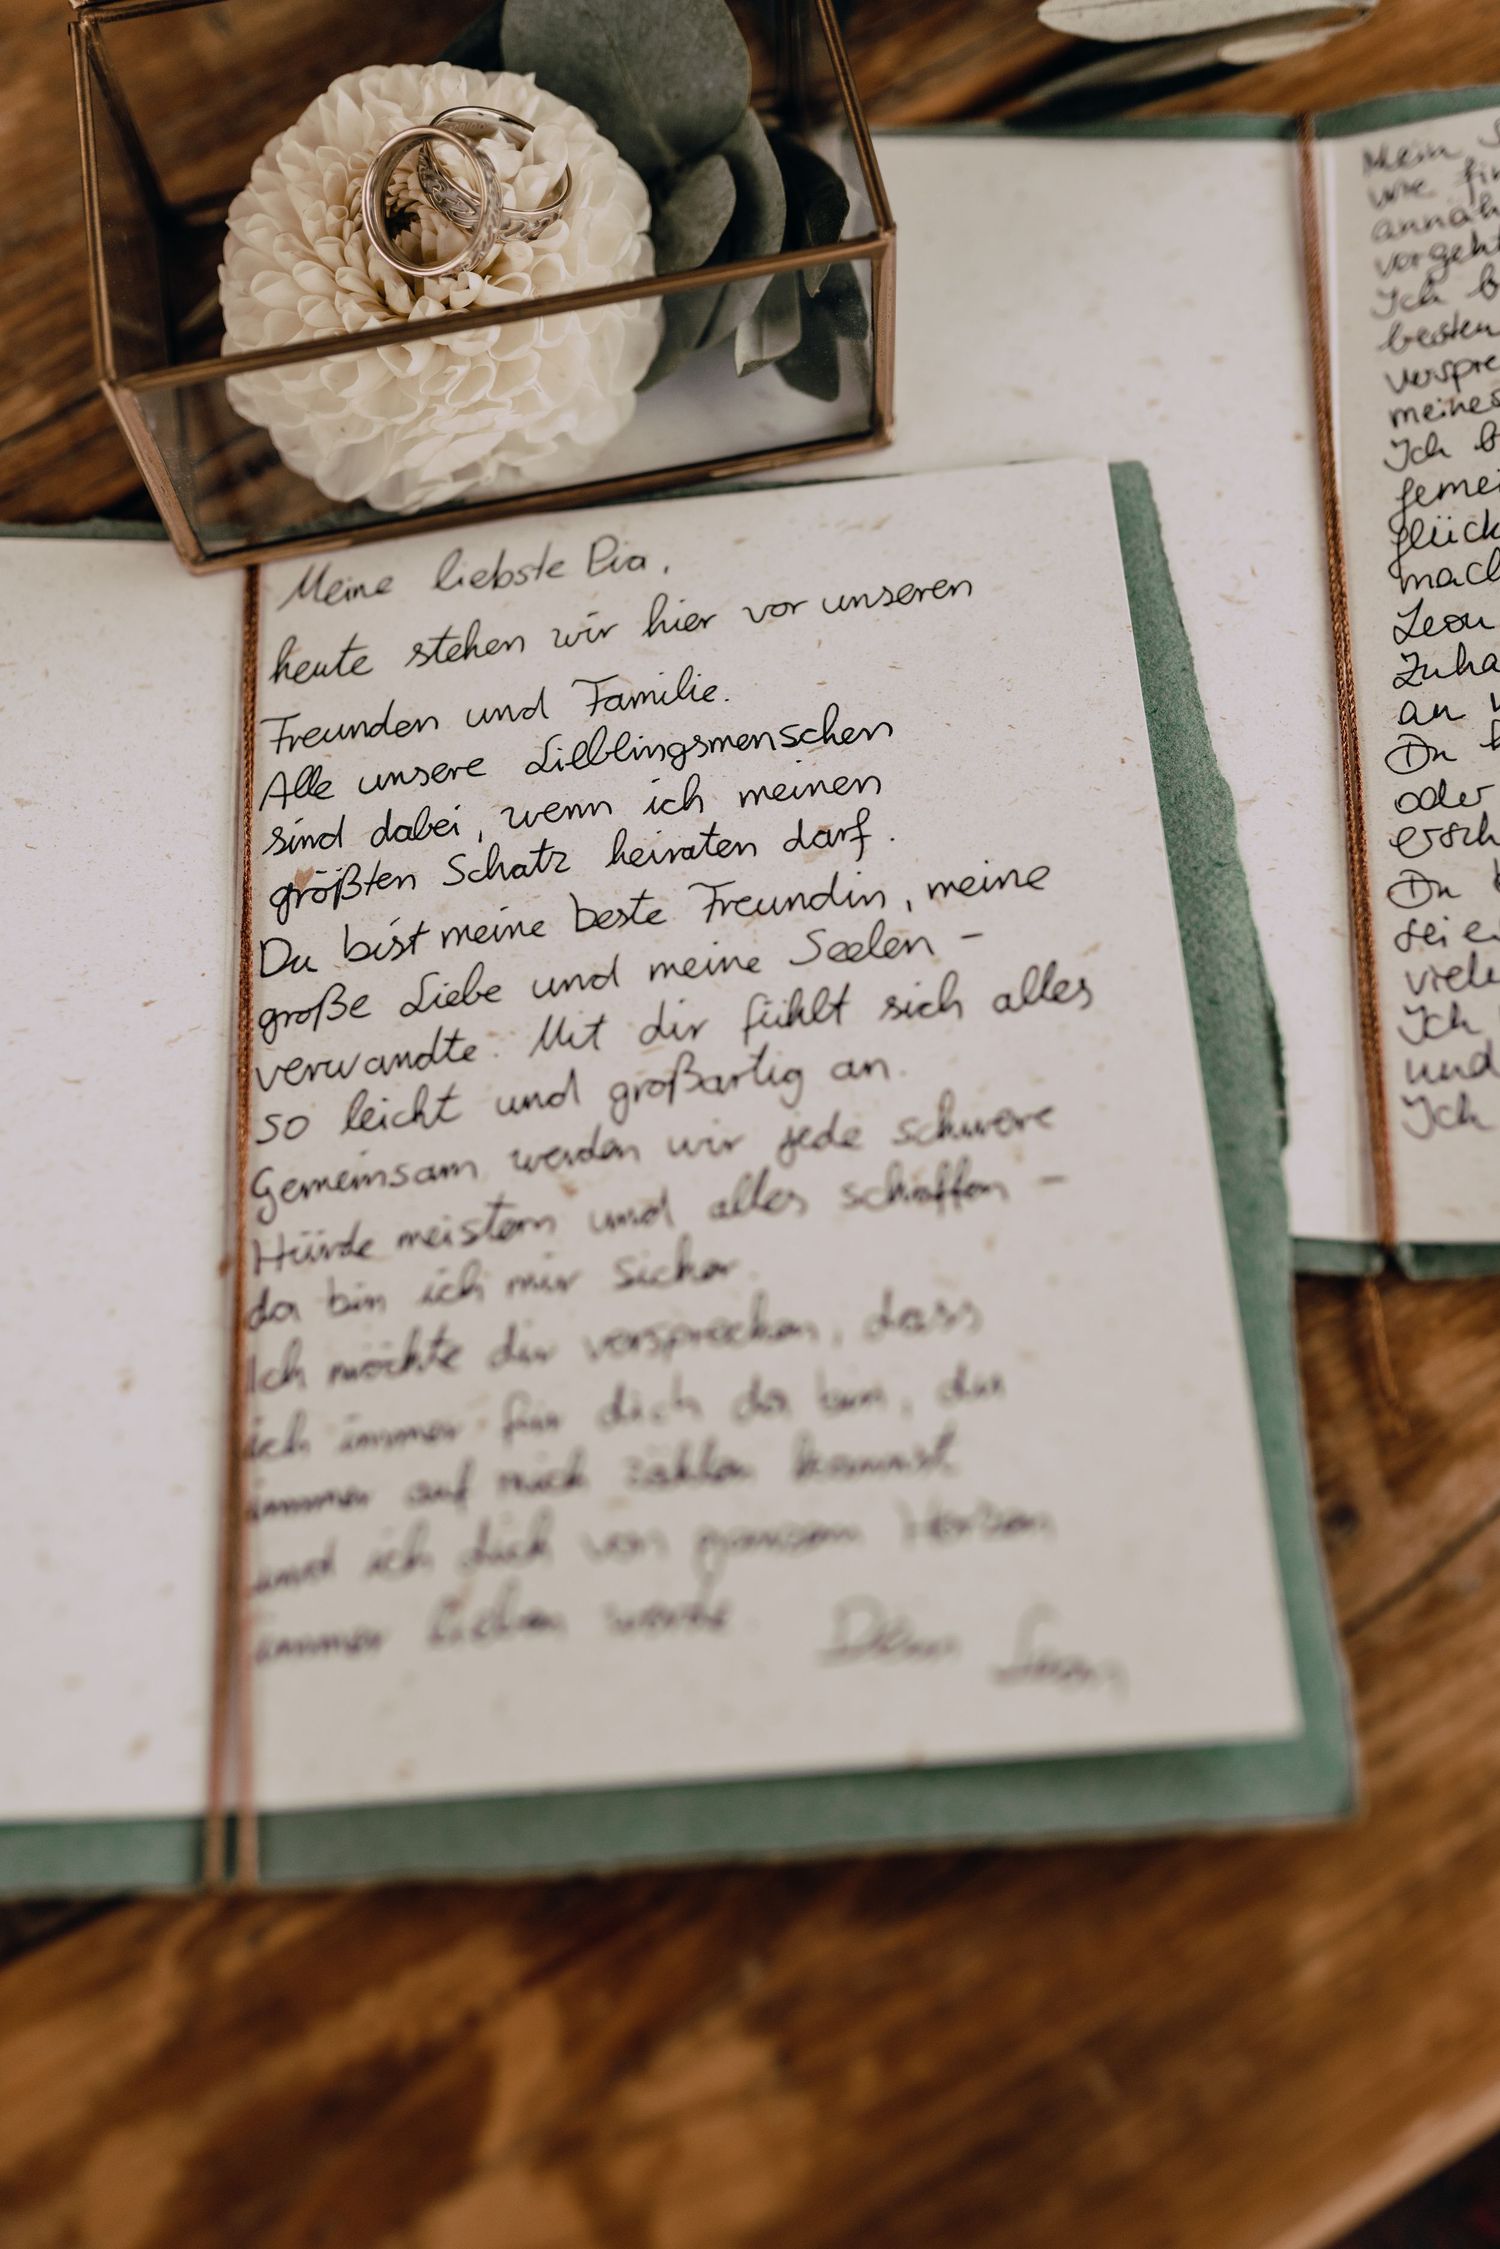 Meine liebste Pia,
heute stehen wir hier vor unseren
Freunden und Familie.
Alle unsere Lieblingsmenschen
sind dabei, wenn ich meinen
größten Schatz heiraten darf.
Du bist meine beste Freundin, meine
große Liebe und meine Seelen-
verwandte. Mit dir fühlt sich alles
so leicht und großartig an.
Gemeinsam werden wir jede schwere
Hürde meistern und alles schaffen -
da bin ich mir sicher.
Ich möchte dir versprechen, dass
ich immer für dich da bin, du
immer auf mich zählen kannst
und ich dich von ganzem Herzen
immer lieben werde. Dein Leon
Mein S
wie fin
annäh
vorgeht
Ich b
besten
verspre
meines
Ich b
gemei
glück
mach
Leon
Zuha
an
Du b
oder
ersch
Du b
sei e
viele
Ich
und
Ich